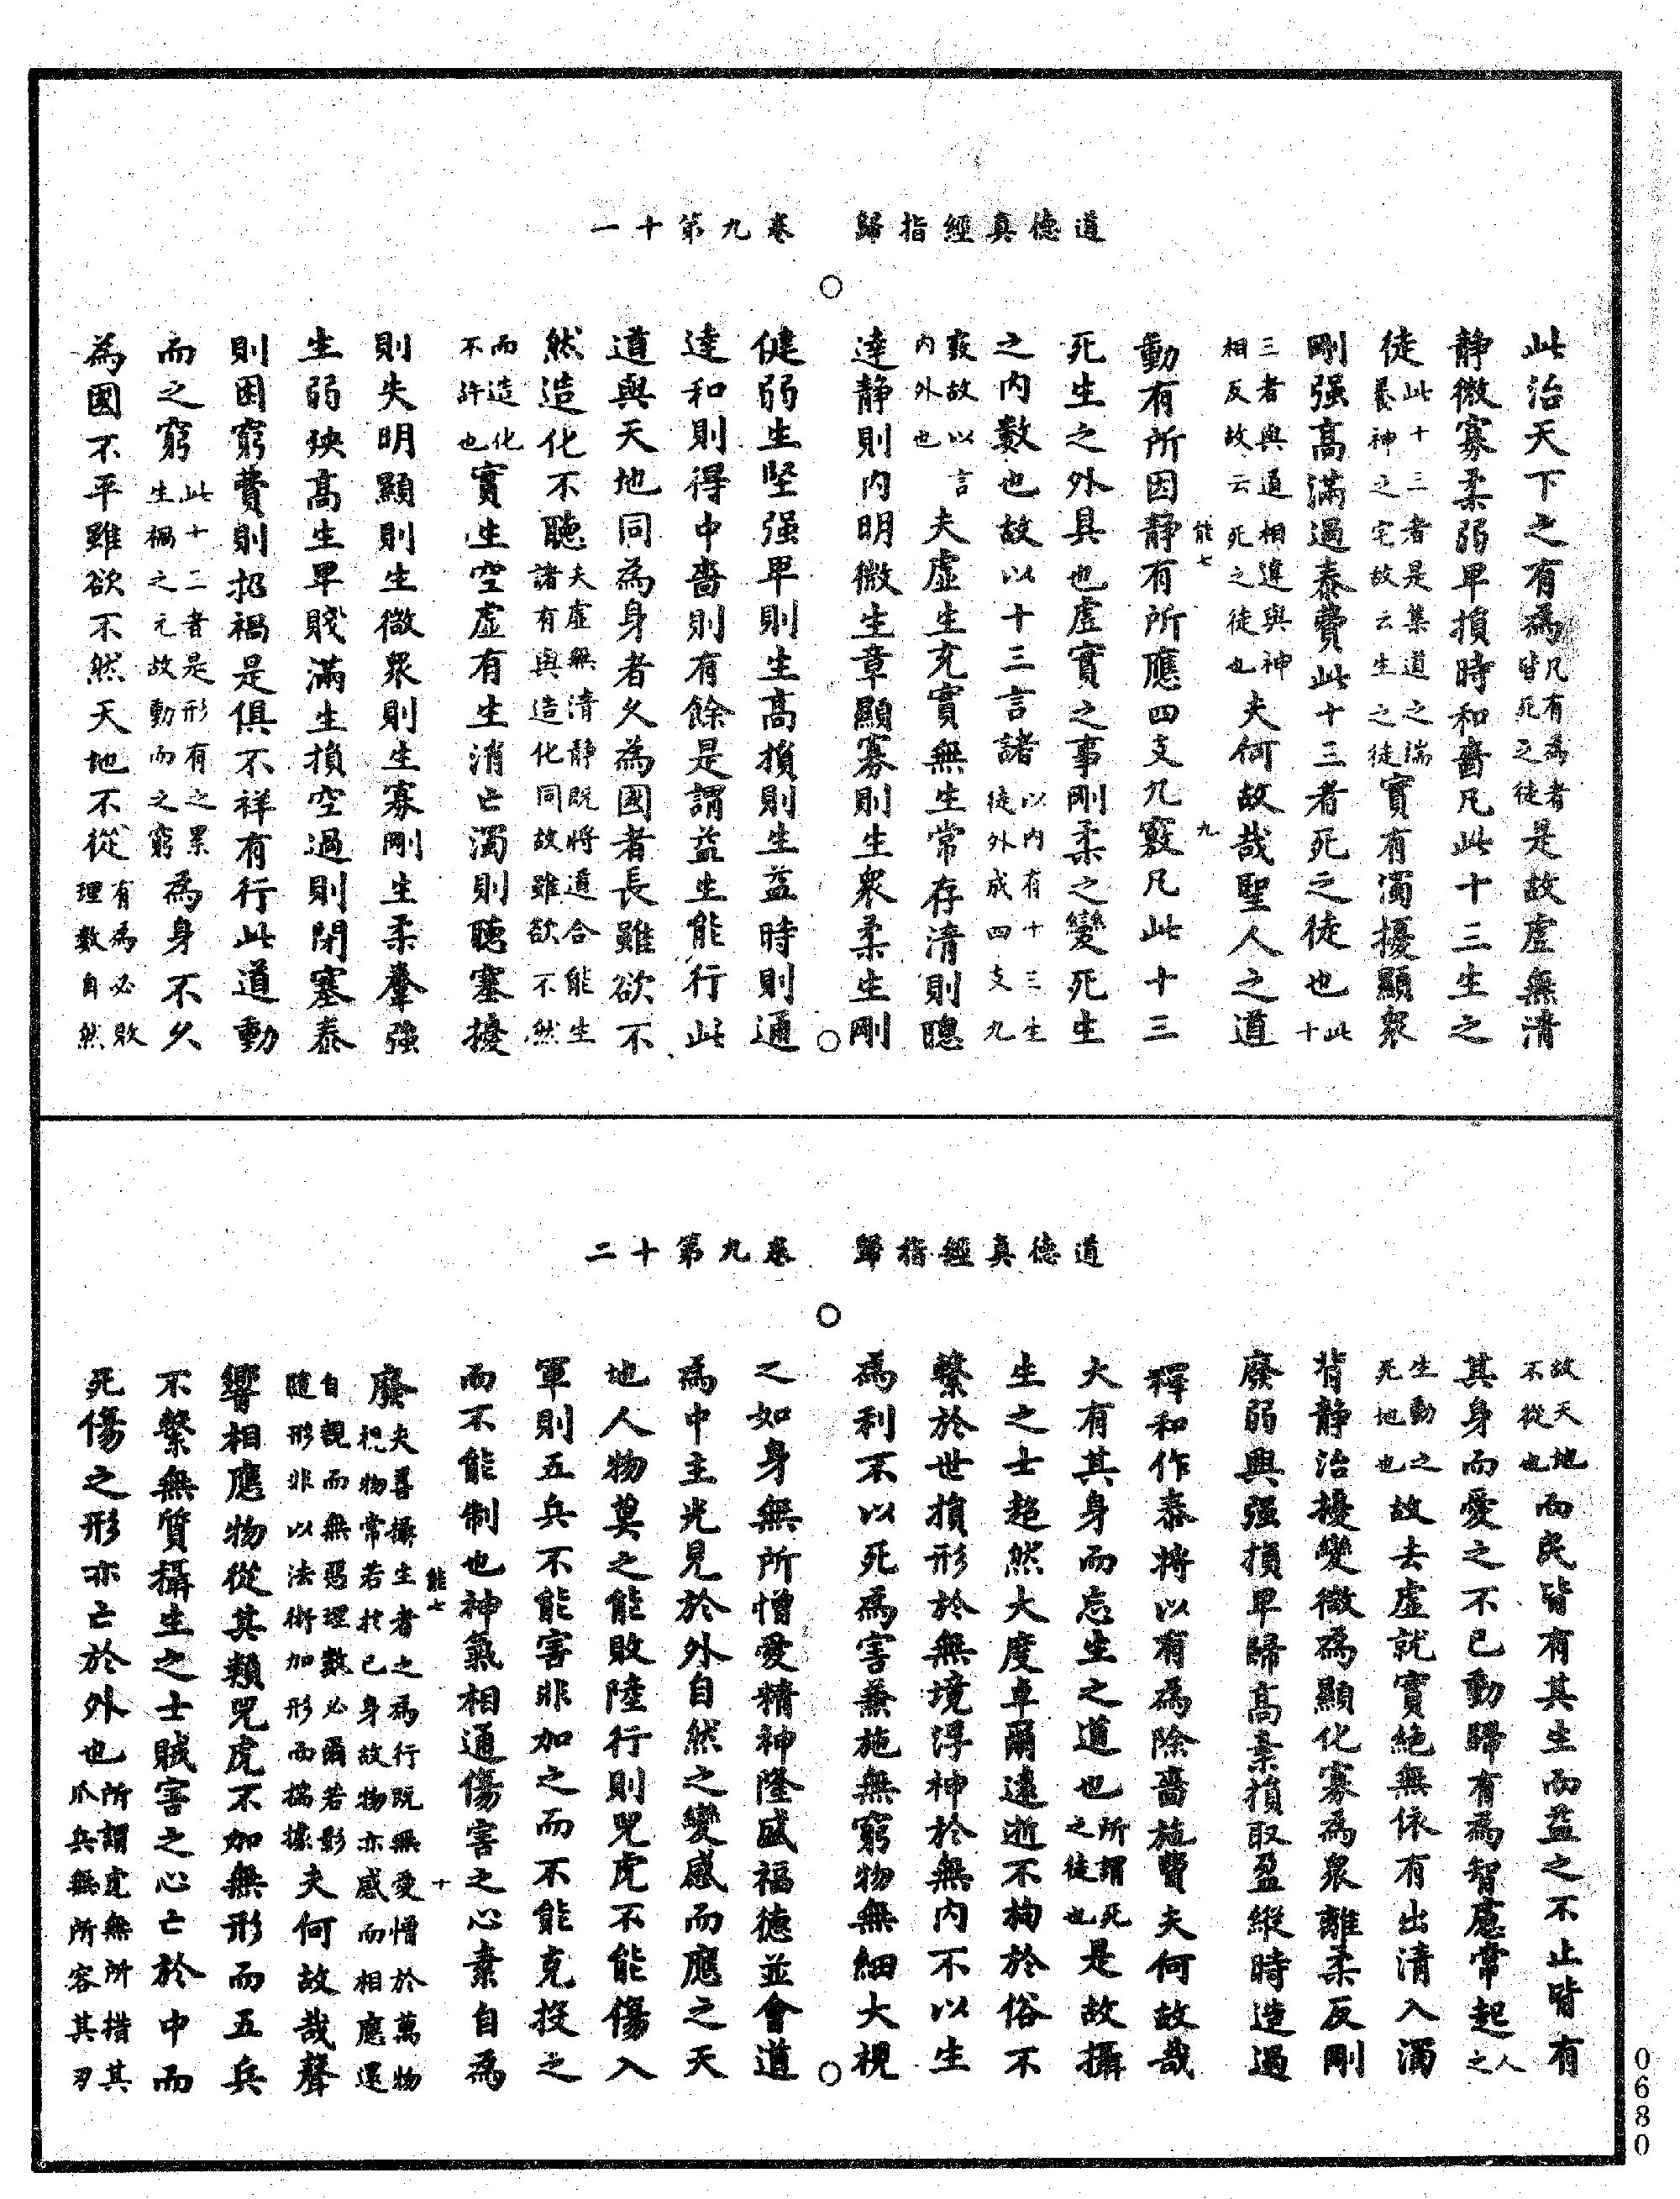 道德真經指歸　卷九　第十一
此治天下之有為凡有為者皆死之徒是故虛無清
靜微寡柔弱卑損時和嗇凡此十三生之
徒此十三者是集道之瑞養神之宅故云生之徒實有濁擾顯眾
剛强高滿過泰費此十三者死之徒也此十
三者與道相違與神相反故云死之徒也夫何故哉聖人之道
能七　九
動有所因靜有所應四支九竅凡此十三
死生之外具也虛實之事剛柔之變死生
之內數也故以十三言諸以內有十三生徒外成四支九
竅故以言內外也夫虛生充實無生常存清則聰
達靜則內明微生章顯寡則生眾柔生剛
健弱生堅强卑則生高損則生益時則通
達和則得中嗇則有餘是謂益生能行此
道與天地同為身者久為國者長雖欲不
然造化不聽夫虛無清靜既將道合能生諸有與造化同故雖欲不然
而造化不許也實生空虛有生消亡濁則聽塞擾
則失明顯則生微眾則生寡剛生柔羣强
生弱殃高生卑賤滿生損空過則閉塞泰
則困窮費則招禍是俱不祥有行此道動
而之窮此十二者是形有之累生禍之元故動而之窮為身不久
為國不平雖欲不然天地不從有為必敗理數自然
道德真經指歸　卷九　第十二
故天地不從也而民皆有其生而益之不止皆有
其身而愛之不已動歸有為智慮常起人之
生動之死地也故去虛就實絕無依有出清入濁
背靜治擾變微為顯化寡為眾離柔反剛
廢弱興强損卑歸高棄損取盈縱時造過
釋和作泰將以有為除嗇施費夫何故哉
大有其身而忘生之道也所謂死之徒也是故攝
生之士超然大度卓爾遠逝不拘於俗不
繫於世損形於無境浮神於無內不以生
為利不以死為害兼施無窮物無細大視
之如身無所憎愛精神隆盛福德並會道
為中主光見於外自然之變感而應之天
地人物莫之能敗陸行則兕虎不能傷入
軍則五兵不能害非加之而不能克投之
而不能制也神氣相通傷害之心素自為
能七　十
廢夫善攝生者之為行既無愛憎於萬物視物常若於己身故物亦感而相應還
自視而無惡理數必爾若影隨形非以法術加形而擒據夫何故哉聲
響相應物從其類兕虎不加無形而五兵
不繫無質攝生之士賊害之心亡於中而
死傷之形亦亡於外也所謂虎無所措其爪兵無所容其刃
0680